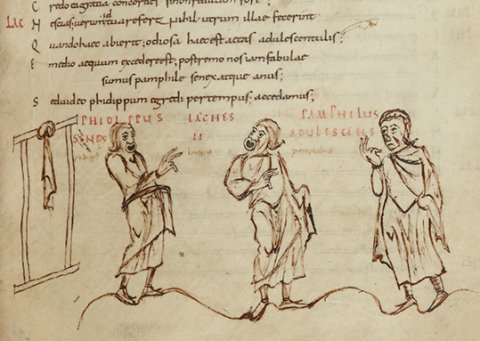 C redo eagratia concordes fore
LAC N escias; uerum id tua refert nihil utrum illae fecerint
Q uando haec abierit; odiosa haec est aetas adulescentulis;
E medio aequum excedere est; postremo nos iam fabulae
sumus pamphile senex atque anus;
S ed uideo phidippum egredi per tempus; accedamus;
PHIDIPPUS LACHES PAMPHILUS
SENEX II ADULESCENS